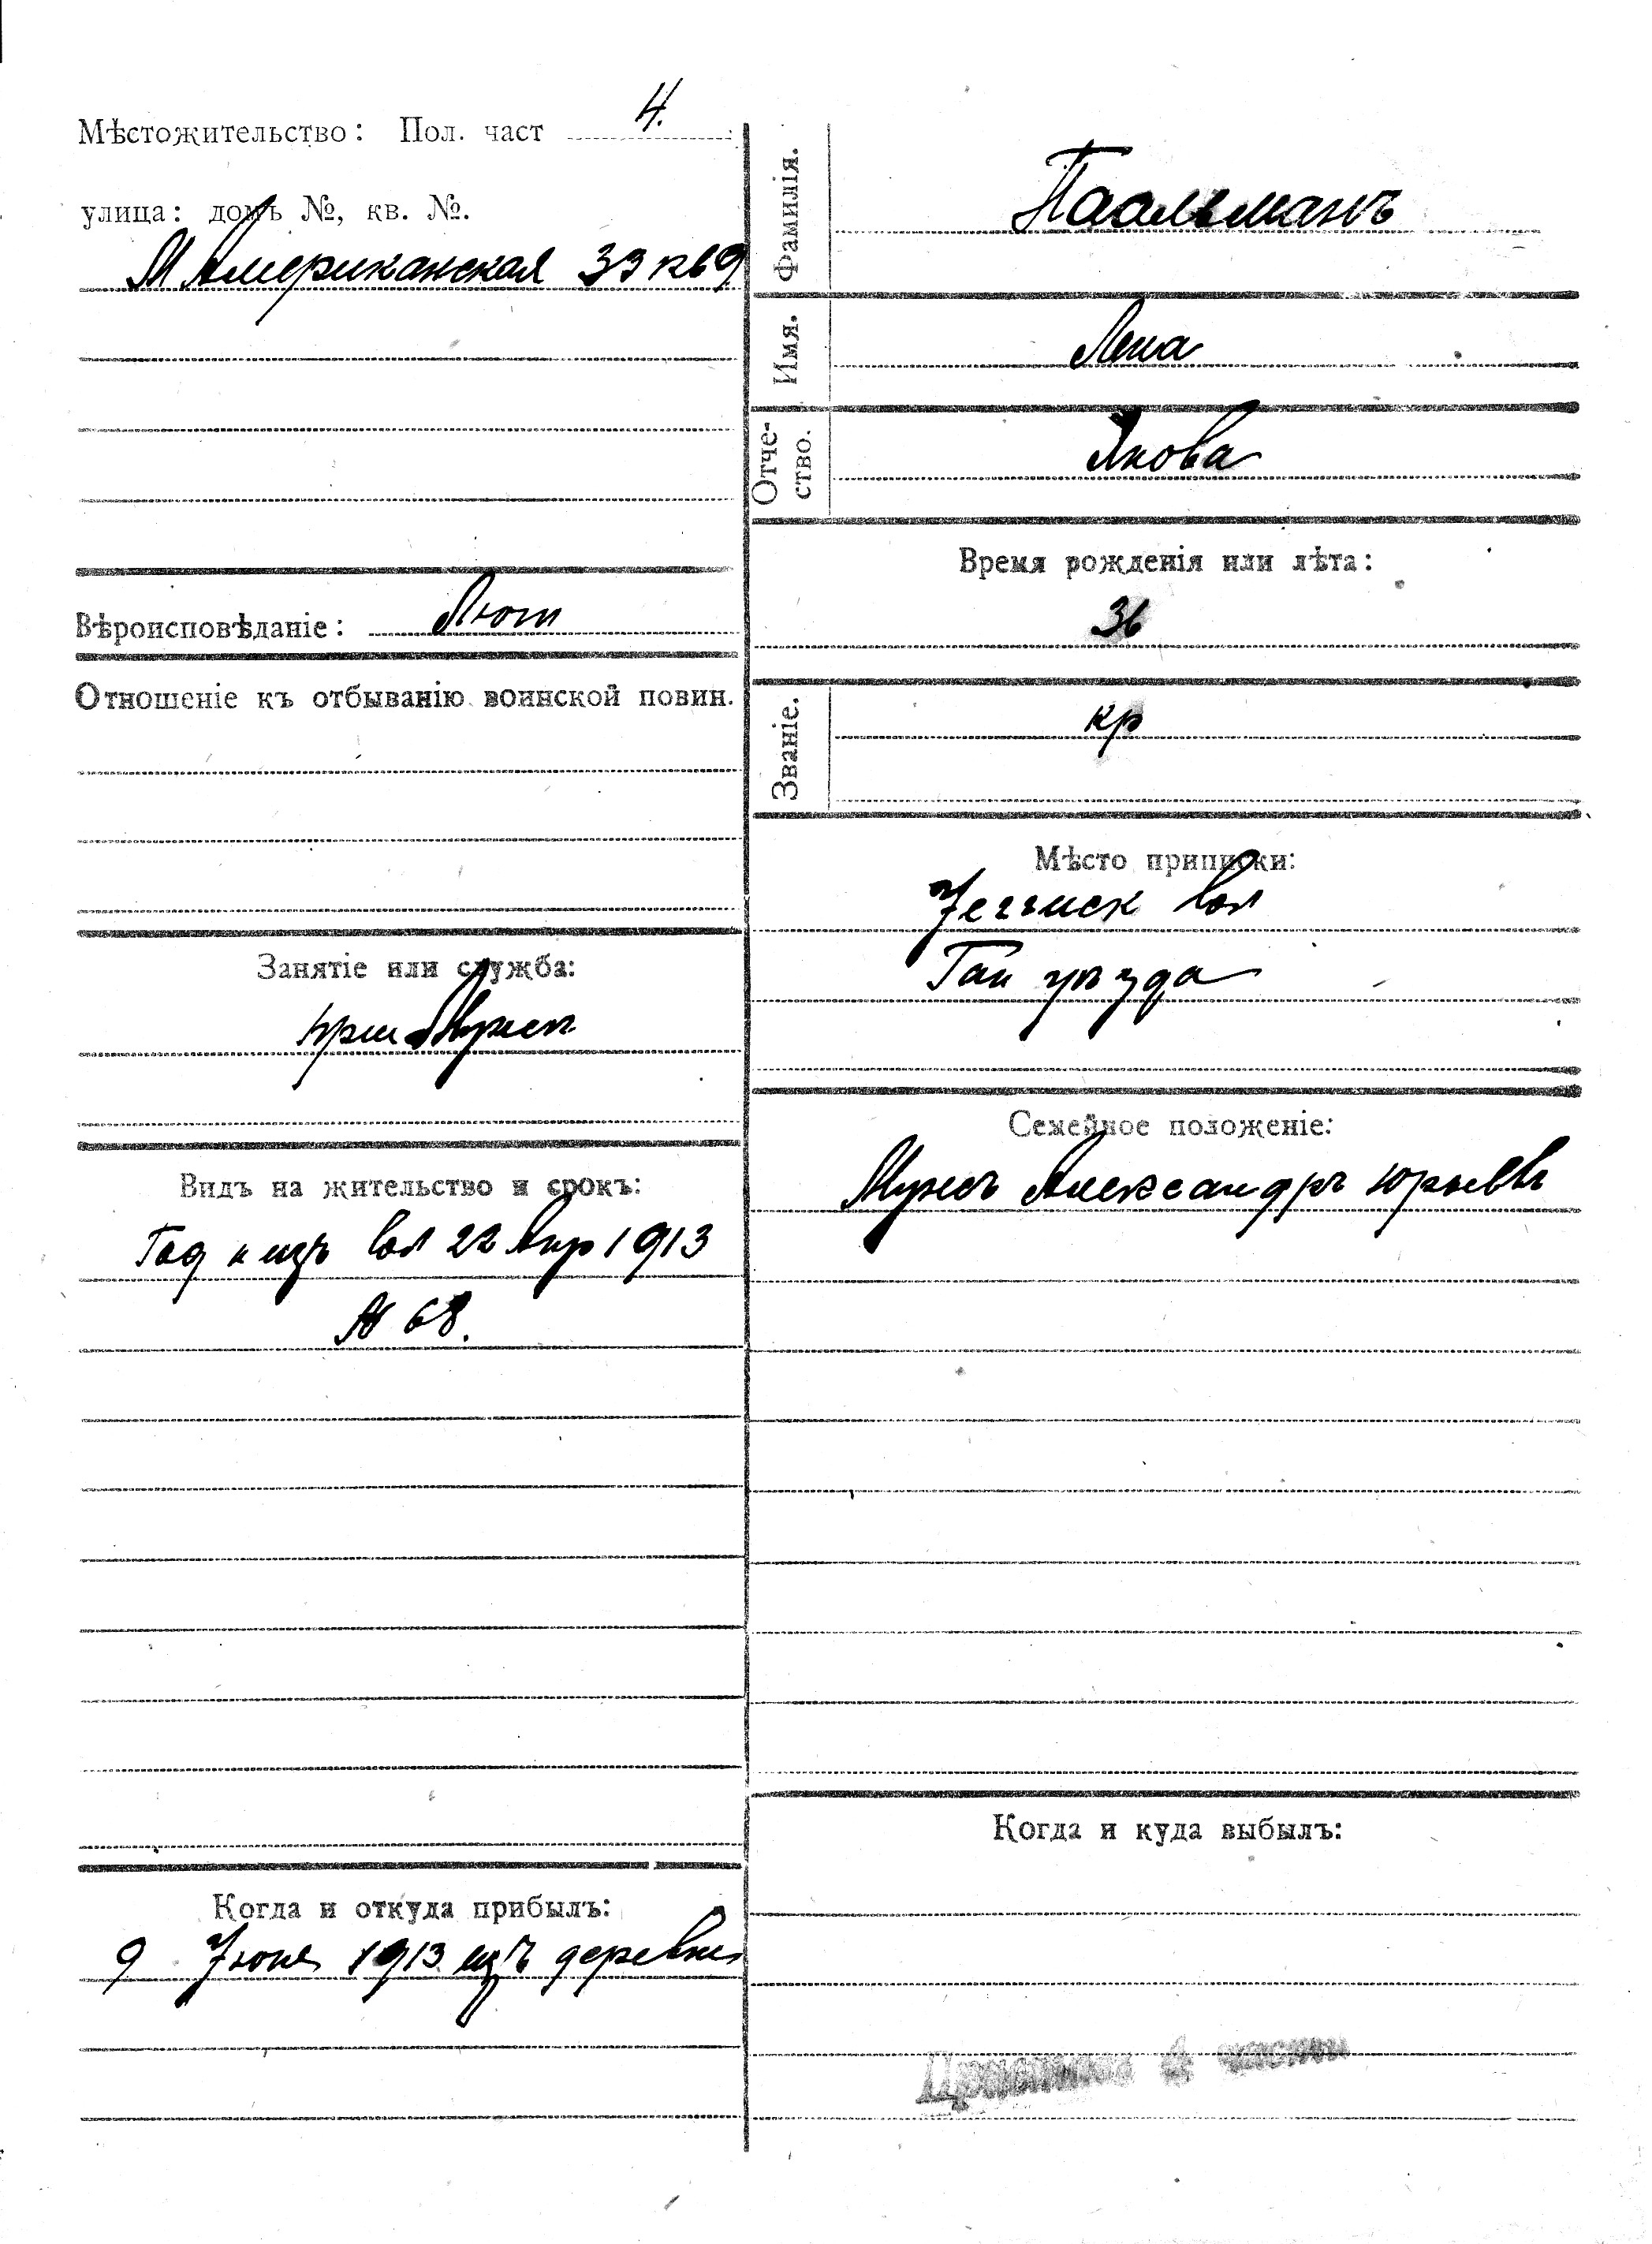 Мѣстожительство: Пол. част 4.
улица: домъ №, кв. №.
М Американская 39 кв 9
Вѣроисповѣданіе: Лют
Отношеніе къ отбыванію воинской повин.
Занятіе или служба:
при мужѣ
Видъ на жительство и срокъ:
Год изъ вол 22 Апр 1913
№ 68.
Когда и откуда прибылъ:
9 Іюня 1913 изъ деревни
Фамилія.
Паальманъ
Имя.
Лена
Отче-
ство.
Якова
Время рожденія или лѣта:
36
Званіе.
кр
Мѣсто приписки:
вол
Гап уѣзда
Семейное положеніе:
Мужъ Александръ Юрьевъ
Когда и куда выбылъ:
4 части